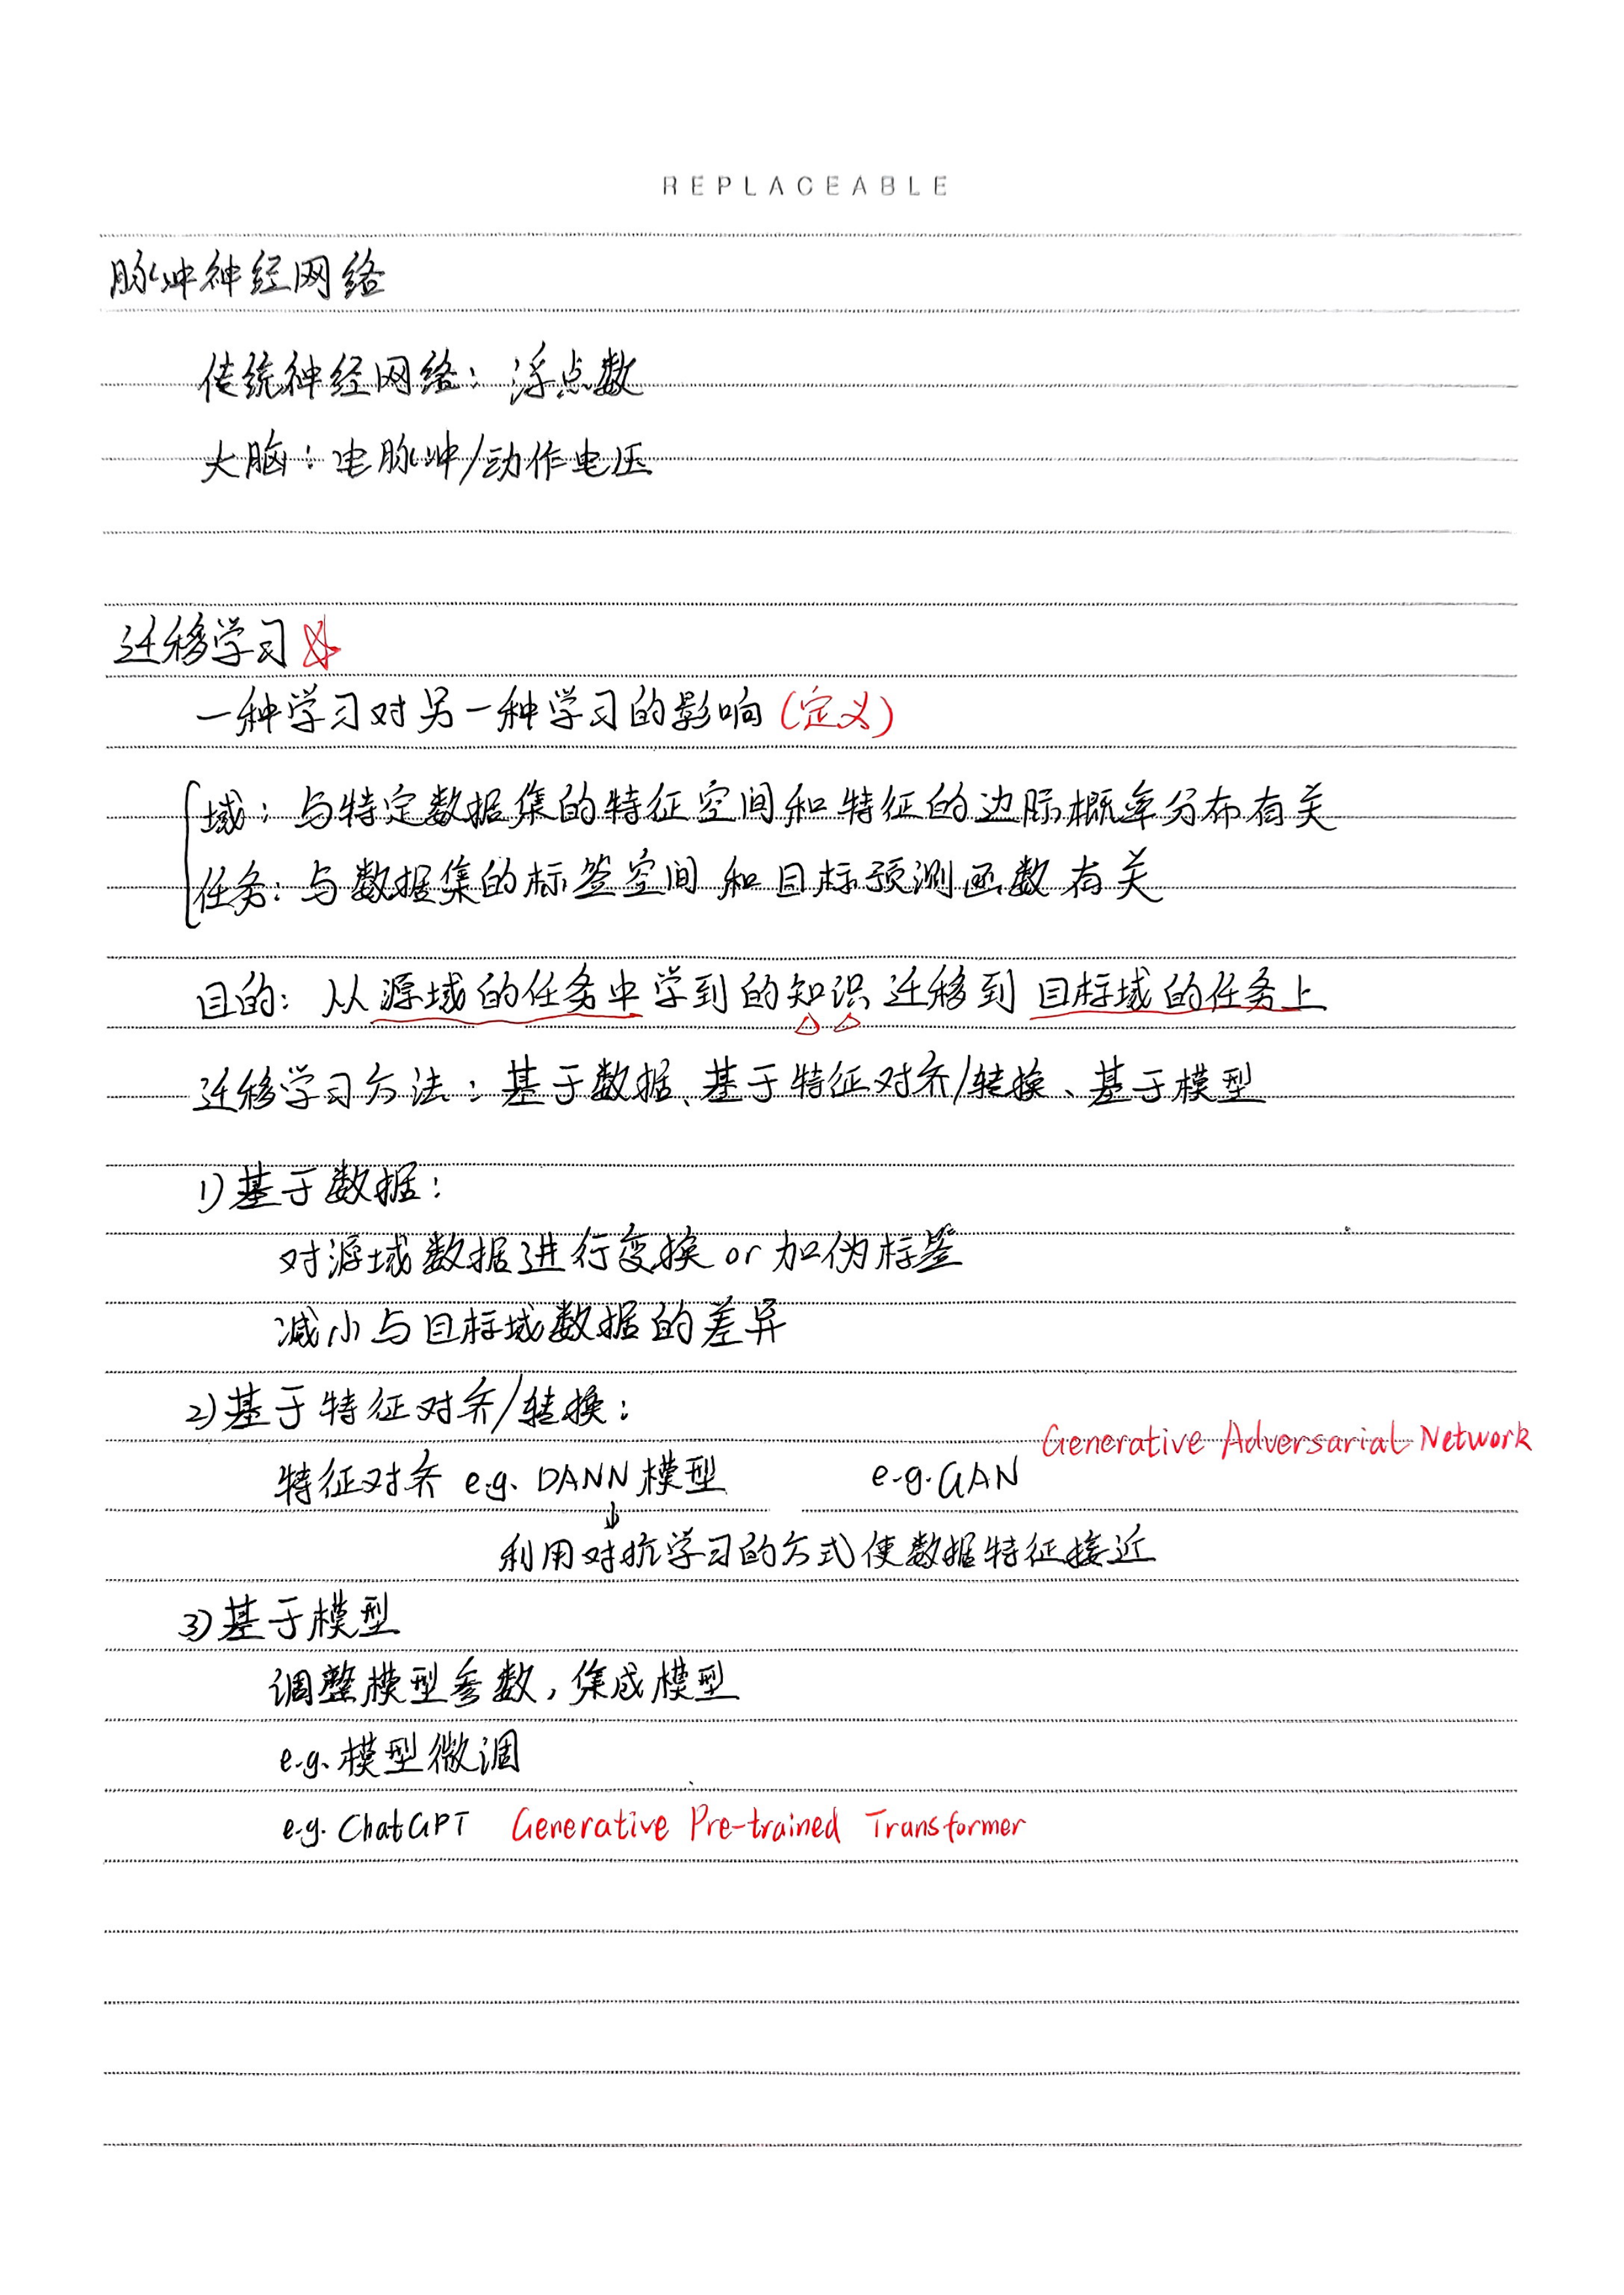 REPLACEABLE
脉冲神经网络
传统神经网络：浮点数
大脑：电脉冲/动作电压
迁移学习
一种学习对另一种学习的影响(定义)
域：与特定数据集的特征空间和特征的边际概率分布有关
任务：与数据集的标签空间和目标预测函数有关
目的：从源域的任务中学到的知识迁移到目标域的任务上
迁移学习方法：基于数据、基于特征对齐/转换、基于模型
1)基于数据：
对源域数据进行变换or加伪标签
减小与目标域数据的差异
2)基于特征对齐/转换：
Generative Adversarial Network
特征对齐 e.g. DANN模型 e.g. GAN
利用对抗学习的方式使数据特征接近
3)基于模型
调整模型参数，集成模型
e.g.模型微调
e.g. ChatGPT Generative Pre-trained Transformer